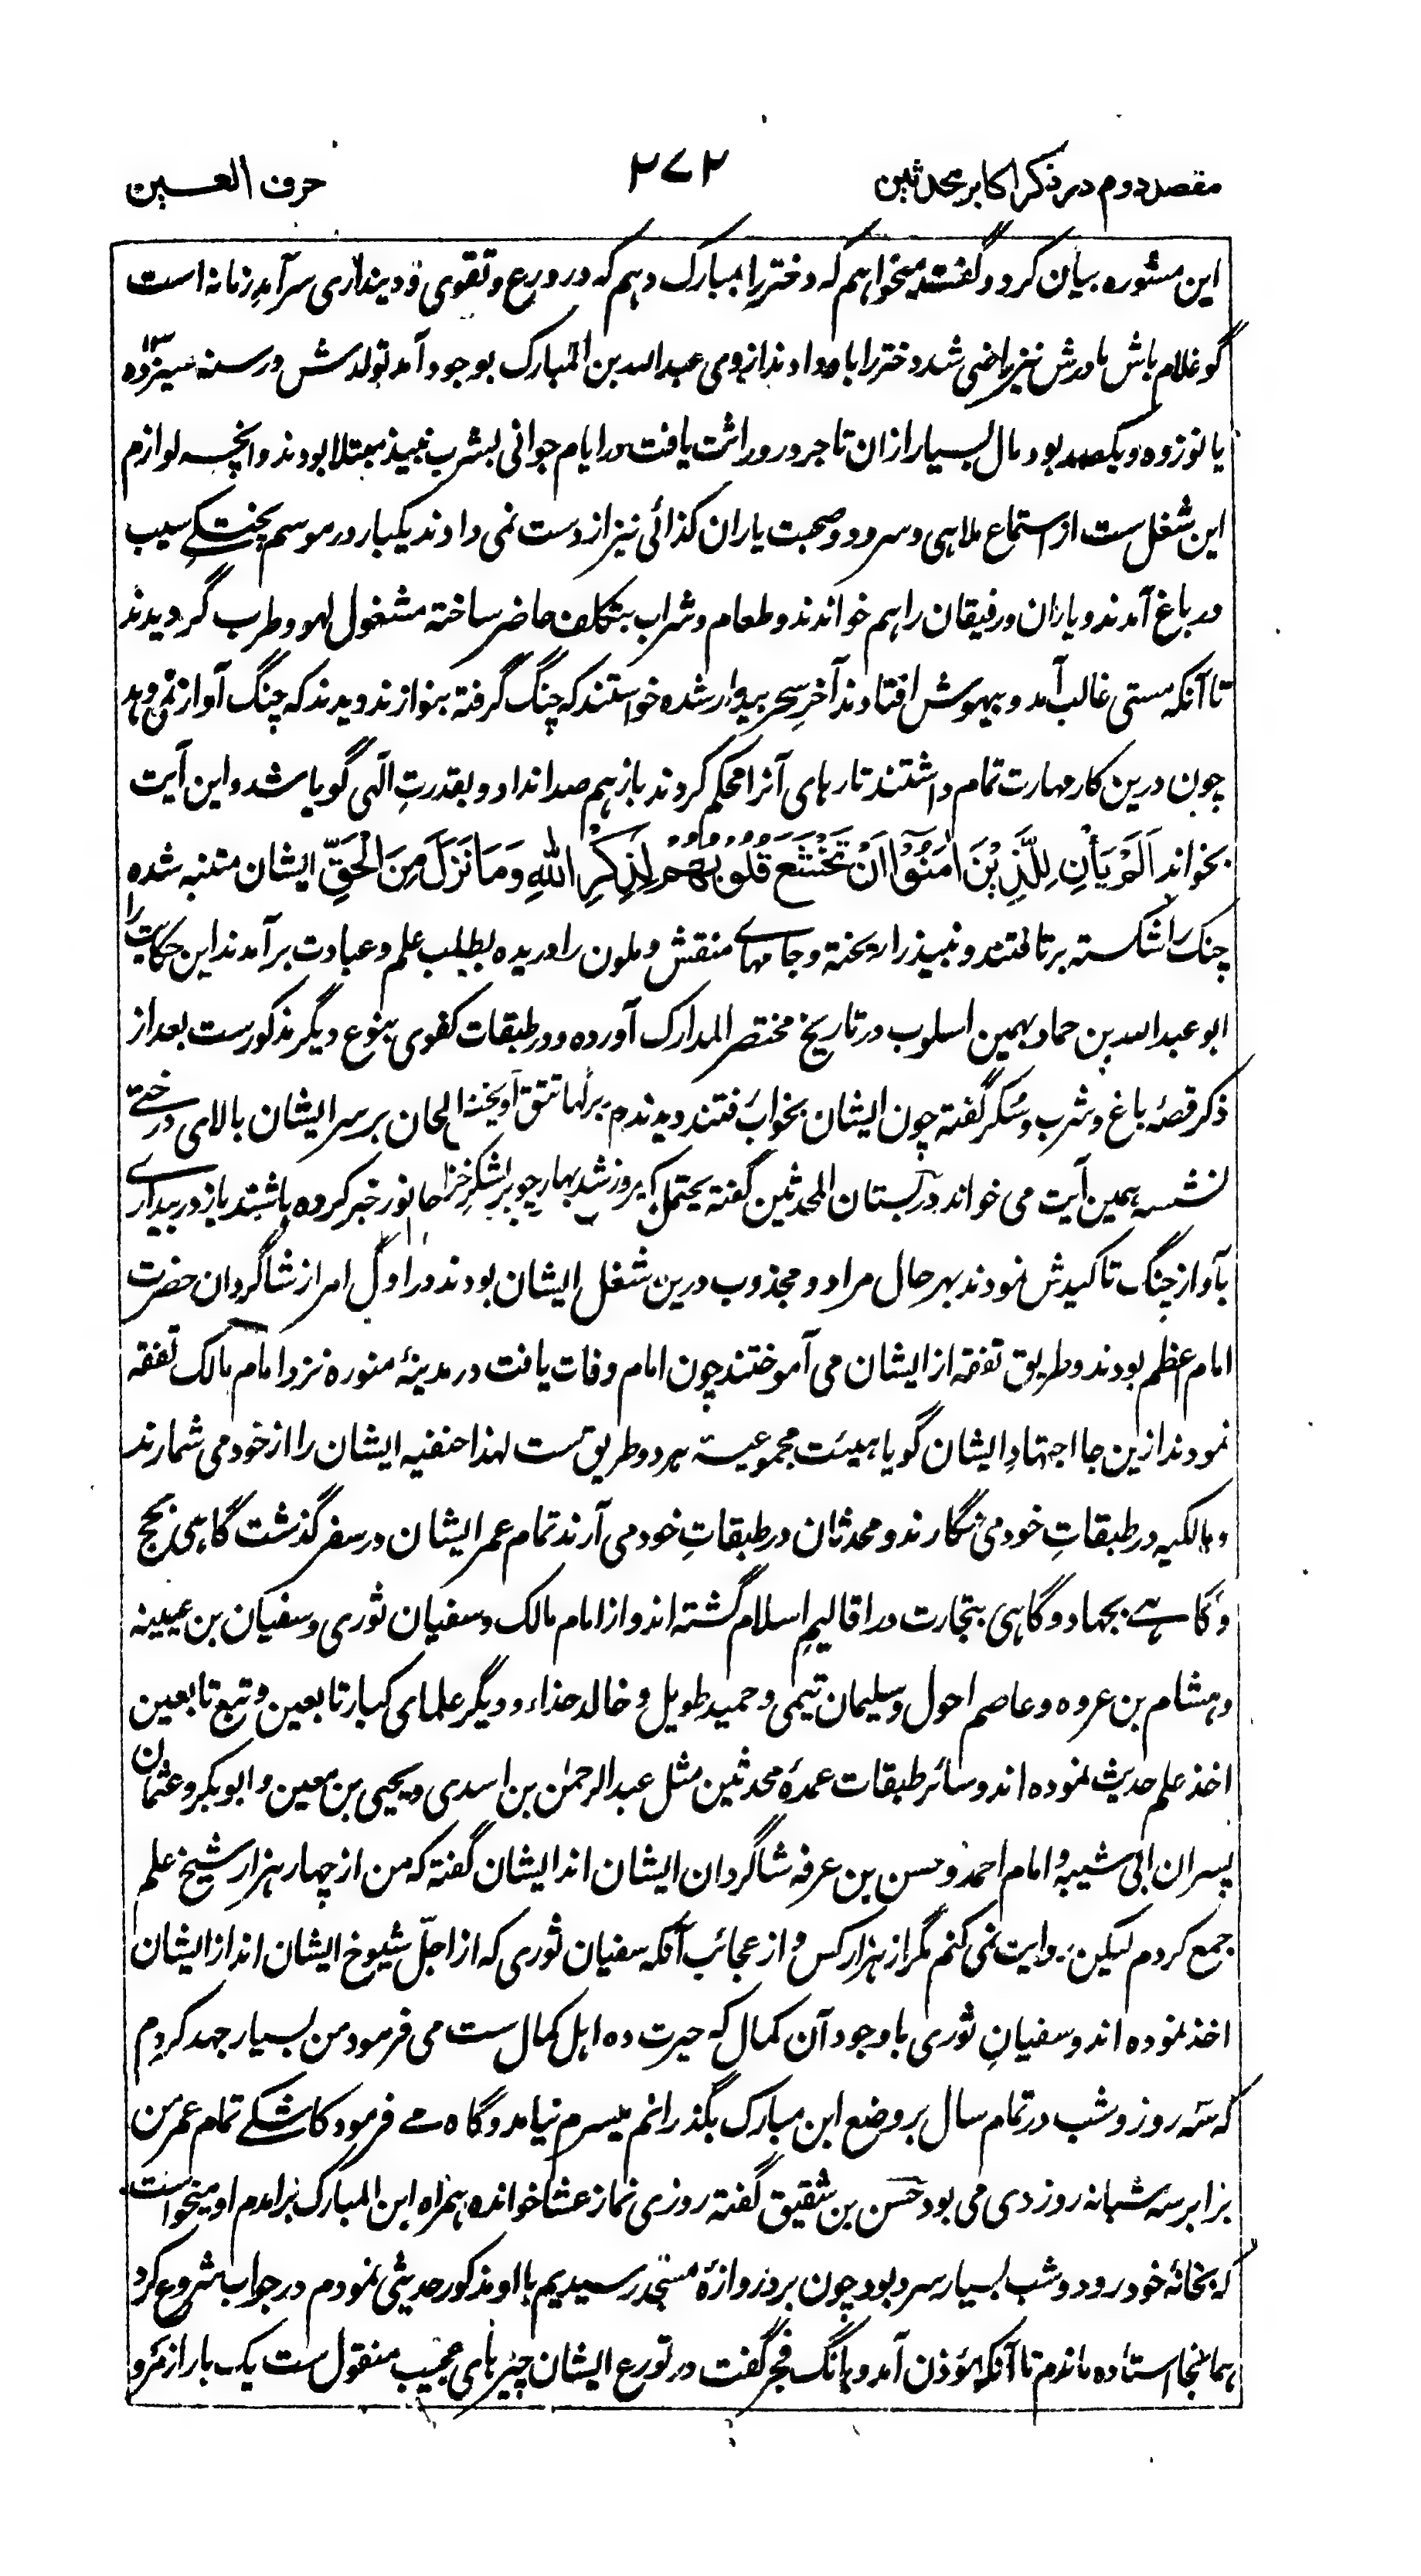 مقصد دوم در ذکر اکابر محدثین
۲۷۲
حرف العین
این مشوره بیان کرد و گفت میخواهم که دختر را بمبارک دهم که در ورع و تقوی و دینداری سرآمدِ زمانه است
گو غلام باش مادرش نیز راضی شد دختر را باو دادند از وی عبدالله بن المبارک بوجود آمد تولدش در سنه سیزده
یا نوزده و یکصد بود مال بسیار ازان تاجر در وراثت یافت در ایام جوانی بشرب نبیذ مبتلا بودند و آنچه لوازم
این شغل ست از استماع ملاهی و سرود و صحبت یاران کذائی نیز از دست نمی دادند یکبار در موسم پختگے سیب
در باغ آمدند و یاران و رفیقان را هم خواندند و طعام و شراب بتکلف حاضر ساخته مشغول لهو و طرب گردیدند
تا آنکه مستی غالب آمد و بیهوش افتادند آخرِ سحر بیدار شده خواستند که چنگ گرفته بنوازند دیدند که چنگ آواز نمی دهد
چون درین کار مهارت تمام داشتند تارهای آنرا محکم کردند باز هم صدا نداد و بقدرتِ الٰهی گویا شد و این آیت
بخواند اَلَمْ يَأْنِ لِلَّذِيْنَ اٰمَنُوْٓا اَنْ تَخْشَعَ قُلُوْبُهُمْ لِذِكْرِ اللهِ وَمَا نَزَلَ مِنَ الْحَقِّ ایشان متنبه شده
چنگ را شکسته برتافتند و نبیذ را ریخته و جامهاے منقش و ملون را دریده بطلب علم و عبادت برآمدند این حکایت را
ابو عبدالله بن حماد بهمین اسلوب در تاریخ مختصر المدارک آورده و در طبقات کفوی بنوع دیگر مذکورست بعد از
ذکر قصهٔ باغ و شرب و سُکر گفته چون ایشان بخواب رفتند دیدند الحان بر سر ایشان بالای درختے
نشسته همین آیت می خواند در بستان المحدثین گفته یحتمل که جانور خبر کرده باشند باز در بیدارے
بآواز چنگ تاکیدش نمودند بهر حال مراد و مجذوب درین شغل ایشان بودند در اول امر از شاگردان حضرت
امام اعظم بودند و طریق تفقه از ایشان می آموختند چون امام وفات یافت در مدینهٔ منوره نزد امام مالک تفقه
نمودند ازین جا اجتهادِ ایشان گویا هیئت مجموعیهٔ هر دو طریق ست لهذا حنفیه ایشان را از خود می شمارند
و مالکیه در طبقاتِ خود می نگارند و محدثان در طبقاتِ خود می آرند تمام عمر ایشان در سفر گذشت گاهی بحج
و گاهے بجهاد و گاهی بتجارت در اقالیمِ اسلام گشته اند و از امام مالک و سفیان ثوری و سفیان بن عیینه
و هشام بن عروه و عاصم احول و سلیمان تیمی و حمید طویل و خالد حذاء و دیگر علمای کبار تابعین و تبع تابعین
اخذ علم حدیث نموده اند و سائر طبقات عمدهٔ محدثین مثل عبدالرحمٰن بن اسدی و یحیی بن معین و ابوبکر و عثمان
پسران ابی شیبه و امام احمد و حسن بن عرفه شاگردان ایشان اند ایشان گفته که من از چهار هزار شیخ علم
جمع کردم لیکن روایت نمی کنم مگر از هزار کس و از عجائب آنکه سفیان ثوری که از اجلّ شیوخ ایشان اند از ایشان
اخذ نموده اند و سفیانِ ثوری باوجود آن کمال که حیرت ده اهل کمال ست می فرمود من بسیار جهد کردم
که سه روز و شب در تمام سال بر وضع ابن مبارک بگذرانم میسرم نیامد و گاه مے فرمود کاشکے تمام عمر من
برابر سه شبانه روز دی می بود حسن بن شقیق گفته روزی نماز عشا خوانده همراه ابن المبارک برآمدم او میخواست
که بخانهٔ خود رود و شب بسیار سرد بود چون بر دروازهٔ مسجد رسیدیم با او مذکور حدیثی نمودم در جواب شروع کرد
همانجا استاده ماندم تا آنکه مؤذن آمد و بانگ فجر گفت در تورع ایشان چیزهای عجیب منقول ست یک بار از مرو